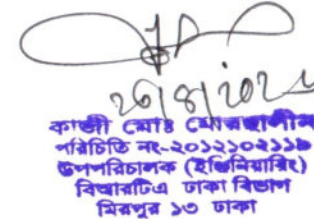 ২৬/৪/২০২৫
কাজী মোঃ মোরছালীন
পরিচিতি নং-২০১২১০২১১৯
উপপরিচালক (ইঞ্জিনিয়ারিং)
বিআরটিএ ঢাকা বিভাগ
মিরপুর ১৩ ঢাকা